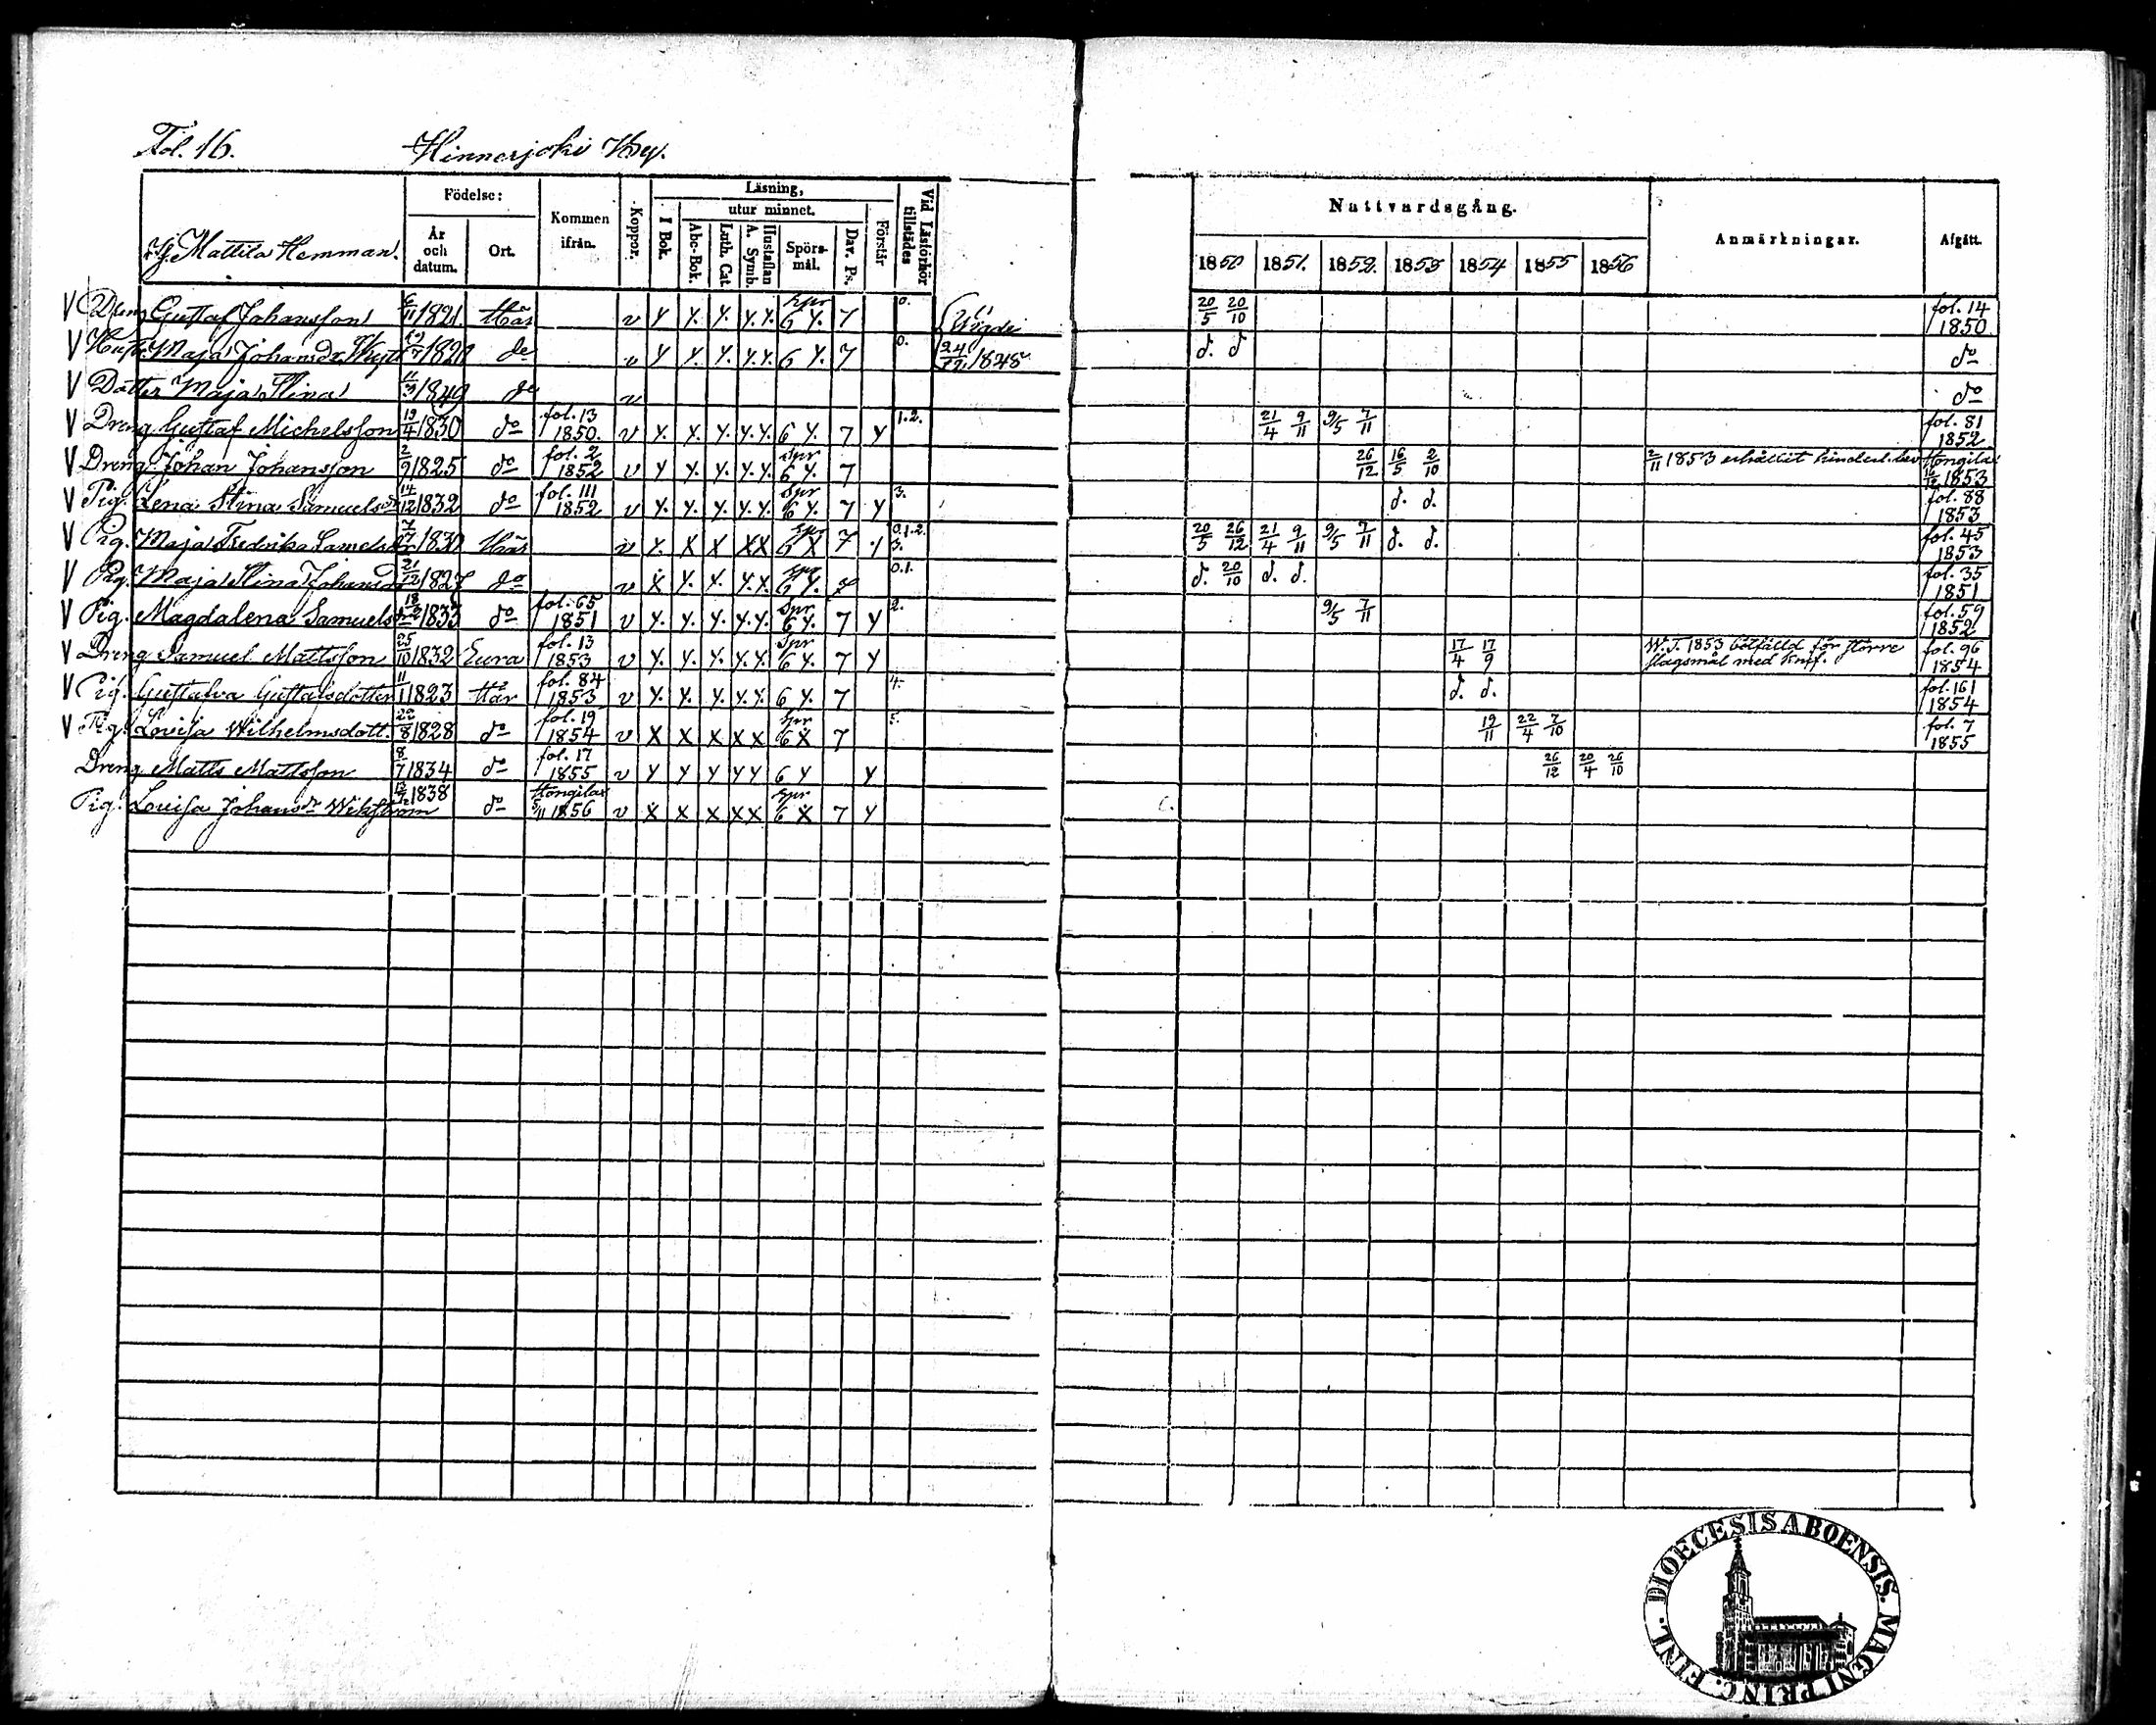 Fol. 16. Hinnerjoki By.
Mattila Hemman.
Födelse:
År och datum.
Ort.
Kommen ifrån.
Koppor.
Läsning,
I Bok.
utur minnet.
Abc-Bok.
Luth. Cat
Hustaflan A. Symb.
Spörsmål.
Dav. Ps.
Förstår
Vid Läsförhör tillstädes
Nattvardsgång.
1850 1851. 1852. 1853 1854 1855 1856
Anmärkningar.
Afgått.
V Dreng Gustaf Johansson 6/11 1821. Här v Y Y. Y. Y.Y. Spr 6 Y. 7 0. Vigde 20/5 20/10 fol. 14 1850
V Hustr. Maja Johansdr 1821 do v Y Y. Y. Y.Y. 6 Y. 7 0. 24/12 1848 d. d do
V Dotter Maja Stina 11/3 1849 do v do
V Dreng Gustaf Michelsson 19/4 1830 do fol. 13 1850. v Y. Y. Y. Y.Y. 6 Y. 7 Y 1.2. 21/4 9/11 9/5 7/11 fol. 81 1852
V Dreng Johan Johansson 2/9 1825 do fol. 2 1852 v Y Y. Y. Y.Y. Spr 6 Y. 7 26/12 16/5 2/10 2/11 1853 erhållit hinderl. bev Hongilax 1853
V Pig. Lena Stina Samuelsdr 14/12 1832 do fol. 111 1852 v Y. Y. Y. Y.Y. Spr 6 Y. 7 Y 3. d. d. fol. 88 1853
V Pig. Maja Fredrika Samelsdr 1830 Här v Y. X X XX Spr 6 X 7 Y 0.1.2. 3. 20/5 26/12 21/4 9/11 9/5 7/11 d. d. fol. 45 1853
V Pig. Maja Stina Johansdr 21/12 1827 do v X Y. Y. Y.Y. Spr 6 Y. 7 0.1. d. 20/10 d. d. fol. 35 1851
V Pig. Magdalena Samuelsdr 1833 do fol. 65 1851 v Y. Y. Y. Y.Y. Spr 6 Y. 7 Y 2. 9/5 7/11 fol. 59 1852
V Dreng Samuel Mattsson 25/10 1832 Eura fol. 13 1853 v Y. Y. Y. Y.Y. Spr 6 Y. 7 Y 17/4 17/9 W.T. 1853 bötfälld för större fol. 96 1854
slagsmål med knif.
V Pig. Gustafva Gustafsdotter 11/1 1823 Här fol. 84 1853 v Y. Y. Y. Y.Y. 6 Y. 7 4. d. d. fol. 161 1854
V Pig. Lovisa Wilhelmsdott. 22/8 1828 do fol. 19 1854 v X X X X X Spr 6 X 7 5. 19/11 22/4 7/10 fol. 7 1855
Dreng Matts Mattsson 8/7 1834 do fol. 17 1855 v Y Y Y Y Y 6 Y Y 26/12 20/4 26/10
Pig. Lovisa Johansdr Wikström 1838 do Hongilax 5/11 1856 v X X X X X Spr 6 X 7 Y
DIOECESIS ABOENSIS. MAGNI PRINC. FINL.